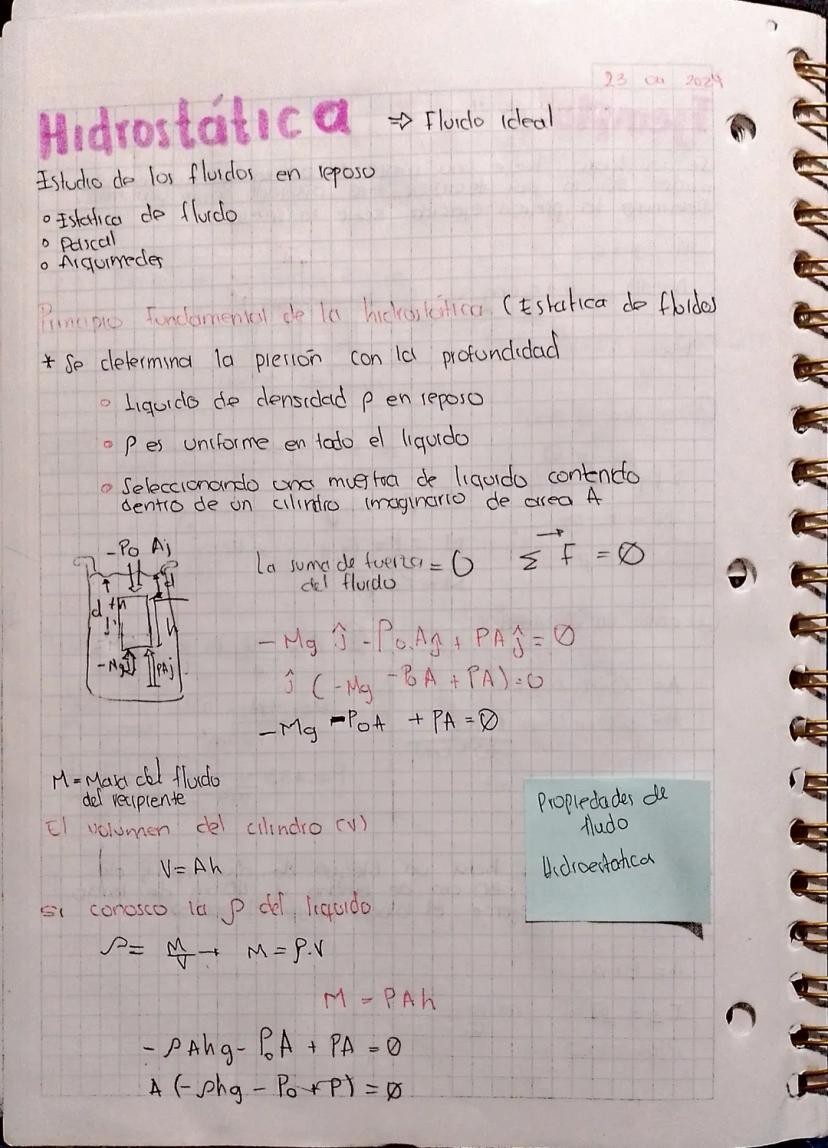 23 Oct 2024
Hidrostática ⇒ Fluido ideal
Estudio de los fluidos en reposo
o Estatica de fluido
o Pascal
o Arquimedes
Principio Fundamental de la hidrostática (Estatica de fluidos
* Se determina la presión con la profundidad
o Liquido de densidad ρ en reposo
o ρ es uniforme en todo el liquido
o Seleccionando una muestra de liquido contenido
dentro de un cilindro imaginario de area A
-Po Aj
d
h
-Mgj
PAj
La suma de fuerza = 0 Σ F⃗ = Ø
del fluido
-Mg ĵ -Po.Aĵ + PA ĵ = Ø
ĵ (-Mg -PoA + PA)=0
-Mg -PoA + PA = Ø
M = Masa del fluido
del recipiente
El volumen del cilindro (V)
V= Ah
Si conosco la ρ del liquido
ρ= M/V → M = ρ.V
M = ρAh
- ρAhg - PoA + PA = Ø
A (-ρhg - Po + P) = Ø
Propiedades de
fludo
Hidroestatica